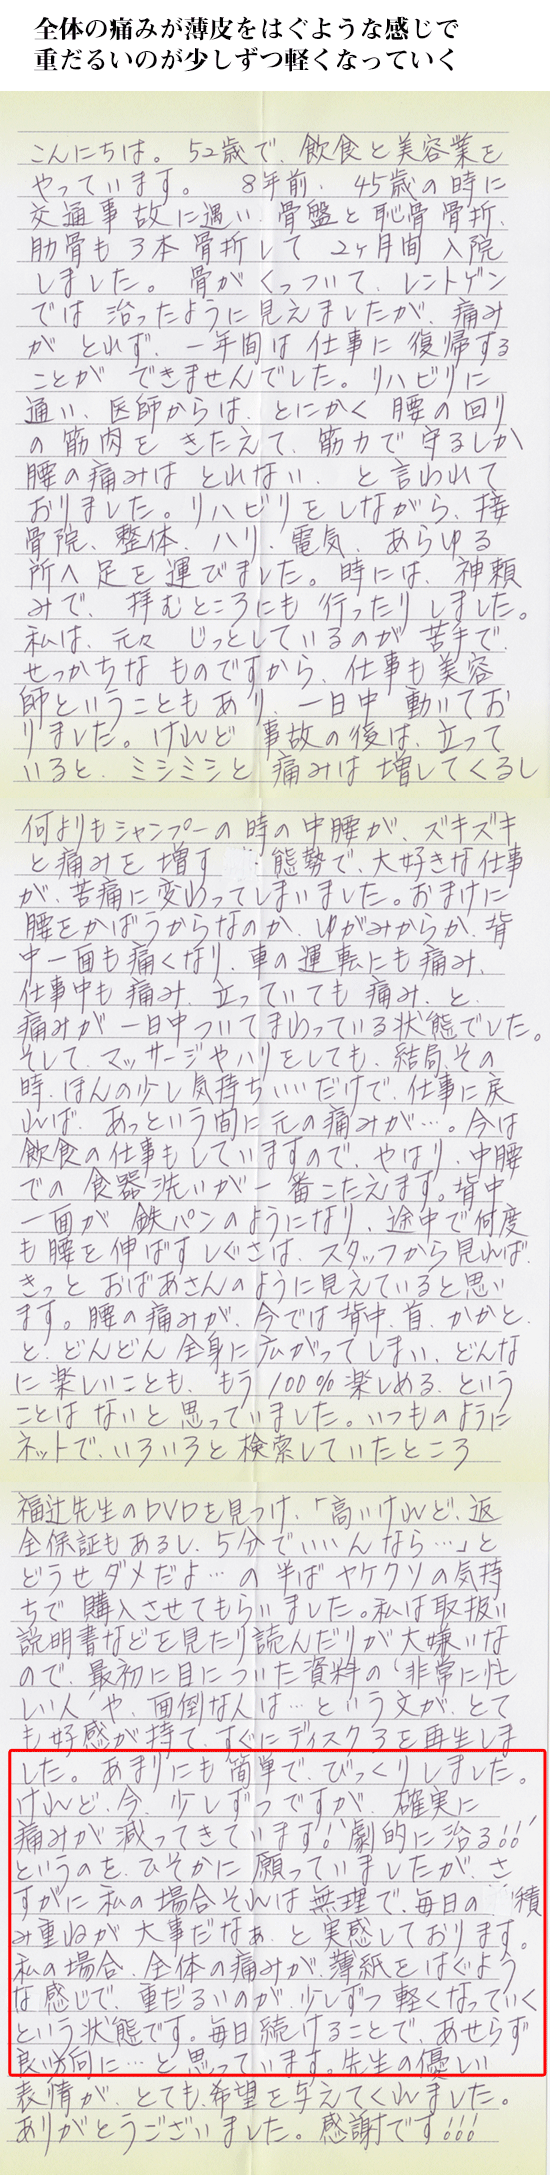 全体の痛みが薄皮をはぐような感じで
重だるいのが少しずつ軽くなっていく
こんにちは。52歳で、飲食と美容業を
やっています。8年前、45歳の時に
交通事故に遇い、骨盤と恥骨骨折、
肋骨も3本骨折して2ヶ月間入院
しました。骨がくっついて、レントゲン
では治ったように見えましたが、痛み
がとれず、一年間は仕事に復帰する
ことができませんでした。リハビリに
通い、医師からは、とにかく腰の回り
の筋肉をきたえて、筋力で守るしか
腰の痛みはとれない、と言われて
おりました。リハビリをしながら、接
骨院、整体、ハリ、電気、あらゆる
所へ足を運びました。時には、神頼
みで、拝むところにも行ったりしました。
私は、元々じっとしているのが苦手で、
せっかちなものですから、仕事も美容
師ということもあり、一日中動いてお
りました。けれど事故の後は、立って
いると、ミシミシと痛みは増してくるし
何よりもシャンプーの時の中腰が、ズキズキ
と痛みを増す態勢で、大好きな仕事
が、苦痛に変わってしまいました。おまけに
腰をかばうからなのか、ゆがみからか、背
中一面も痛くなり、車の運転にも痛み、
仕事中も痛み、立っていても痛み、と、
痛みが一日中ついてまわっている状態でした。
そして、マッサージやハリをしても、結局、その
時、ほんの少し気持ちいいだけで、仕事に戻
れば、あっという間に元の痛みが…。今は
飲食の仕事もしていますので、やはり、中腰
での食器洗いが一番こたえます。背中
一面が鉄パンのようになり、途中で何度
も腰を伸ばすしぐさは、スタッフから見れば、
きっとおばあさんのように見えていると思い
ます。腰の痛みが、今では背中、首、かかと、
と、どんどん全身に広がってしまい、どんな
に楽しいことも、もう100%楽しめる、という
ことはないと思っていました。いつものように
ネットで、いろいろと検索していたところ
福辻先生のDVDを見つけ、「高いけれど、返
金保証もあるし、5分でいいんなら…」と
どうせダメだよ…の半ばヤケクソの気持
ちで購入させてもらいました。私は取扱い
説明書などを見たり読んだりが大嫌いな
ので、最初に目についた資料の「非常に忙
しい人」や、面倒な人は…という文が、とて
も好感が持て、すぐにディスク3を再生しま
した。あまりにも簡単で、びっくりしました。
けれど、今、少しずつですが、確実に
痛みが減ってきています！「劇的に治る！！」
というのを、ひそかに願っていましたが、さ
すがに私の場合それは無理で、毎日の積
み重ねが大事だなぁ、と実感しております。
私の場合、全体の痛みが、薄紙をはぐよう
な感じで、重だるいのが、少しずつ軽くなっていく
という状態です。毎日続けることで、あせらず
良い方向に…と思っています。先生の優しい
表情が、とても、希望を与えてくれました。
ありがとうございました。感謝です！！！